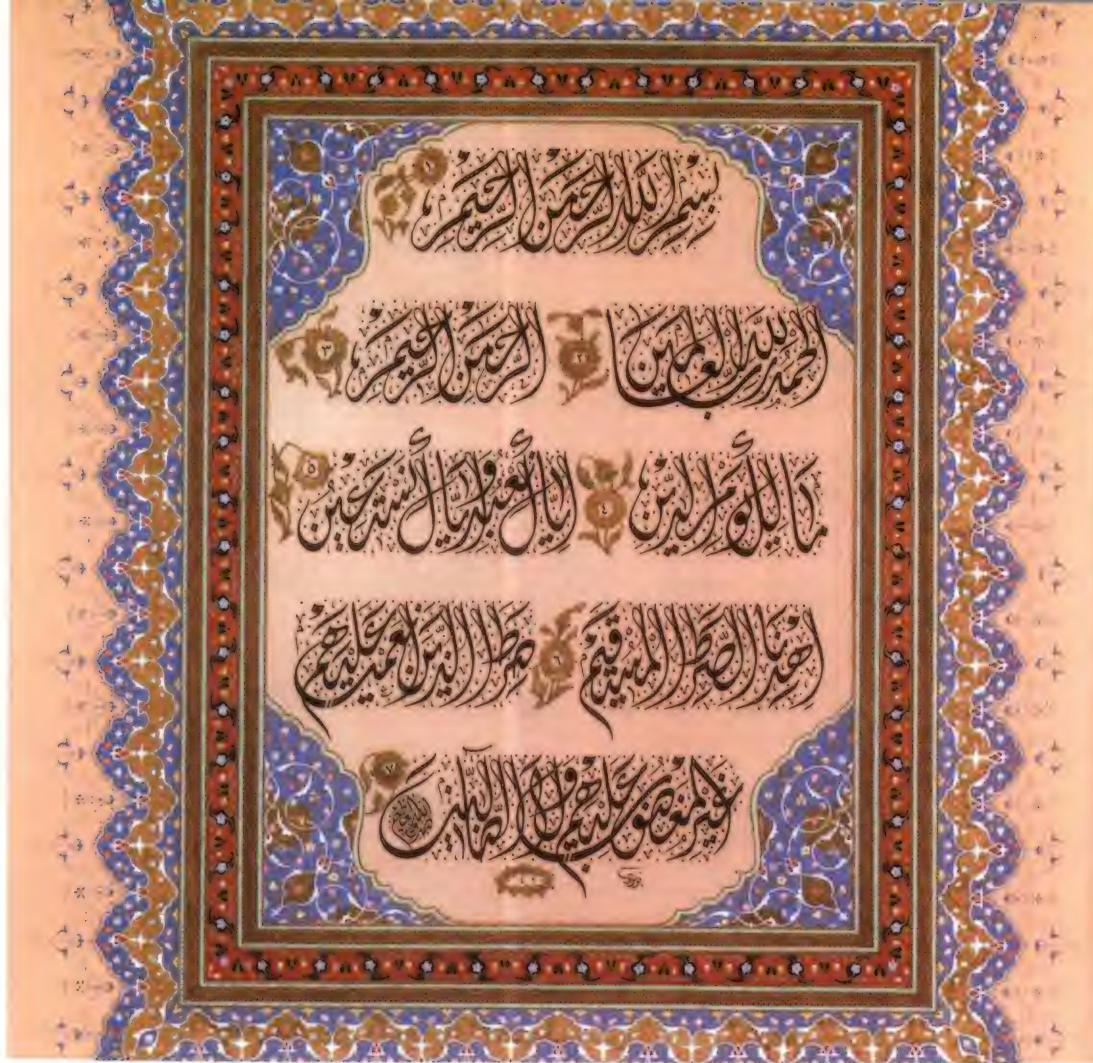 بِسْمِ اللَّهِ الرَّحْمَنِ الرَّحِيمِ ١
الحمد لله رب العالمين ٢ الرحمن الرحيم ٣
مالك يوم الدين ٤ إياك نعبد وإياك نستعين ٥
اهدنا الصراط المستقيم ٦ صراط الذين أنعمت عليهم
غير المغضوب عليهم ولا الضالين ٧